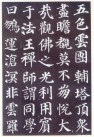 五色雲團輔塔頂衆
盡瞻覩莫不崩悅大
哉觀佛之光利用賓
于法王禪師謂同學
曰鵬運滄溟非雲羅